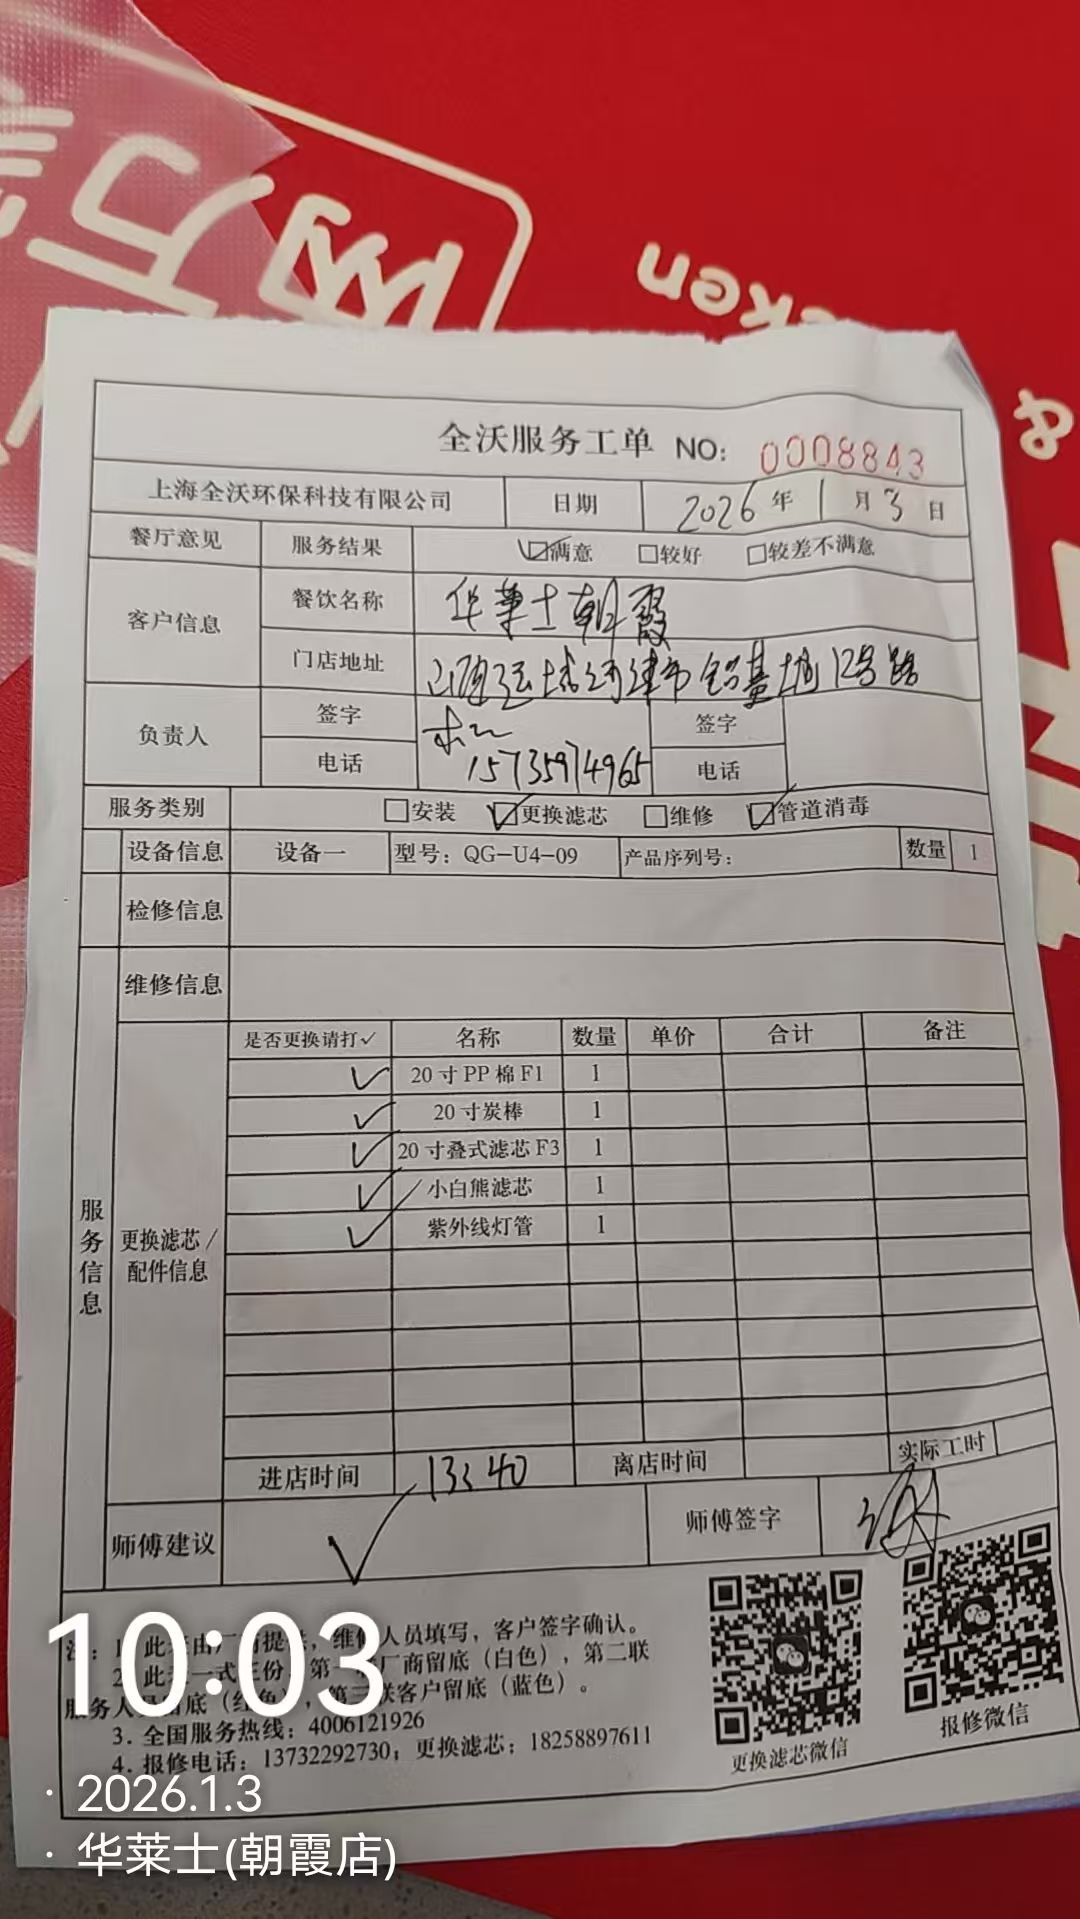 全沃服务工单 NO: 0008843
上海全沃环保科技有限公司 日期 2026年1月3日
餐厅意见 服务结果 ☑满意 □较好 □较差不满意
客户信息 餐饮名称 华莱士朝霞
门店地址 山西运城河津市铝基地12号路
负责人 签字 签字
电话 15735974965 电话
服务类别 □安装 ☑更换滤芯 □维修 ☑管道消毒
设备信息 设备一 型号：QG-U4-09 产品序列号： 数量 1
检修信息
维修信息
服务信息
更换滤芯/
配件信息
是否更换请打✓ 名称 数量 单价 合计 备注
✓ 20寸PP棉F1 1
✓ 20寸炭棒 1
✓ 20寸叠式滤芯F3 1
✓ 小白熊滤芯 1
✓ 紫外线灯管 1
进店时间 13:40 离店时间 实际工时
师傅建议 ✓ 师傅签字
维修人员填写，客户签字确认。
厂商留底（白色），第二联
服务人员留底（红色），第三联客户留底（蓝色）。
3. 全国服务热线：4006121926
4. 报修电话：13732292730；更换滤芯：18258897611
更换滤芯微信
报修微信
10:03
· 2026.1.3
· 华莱士(朝霞店)